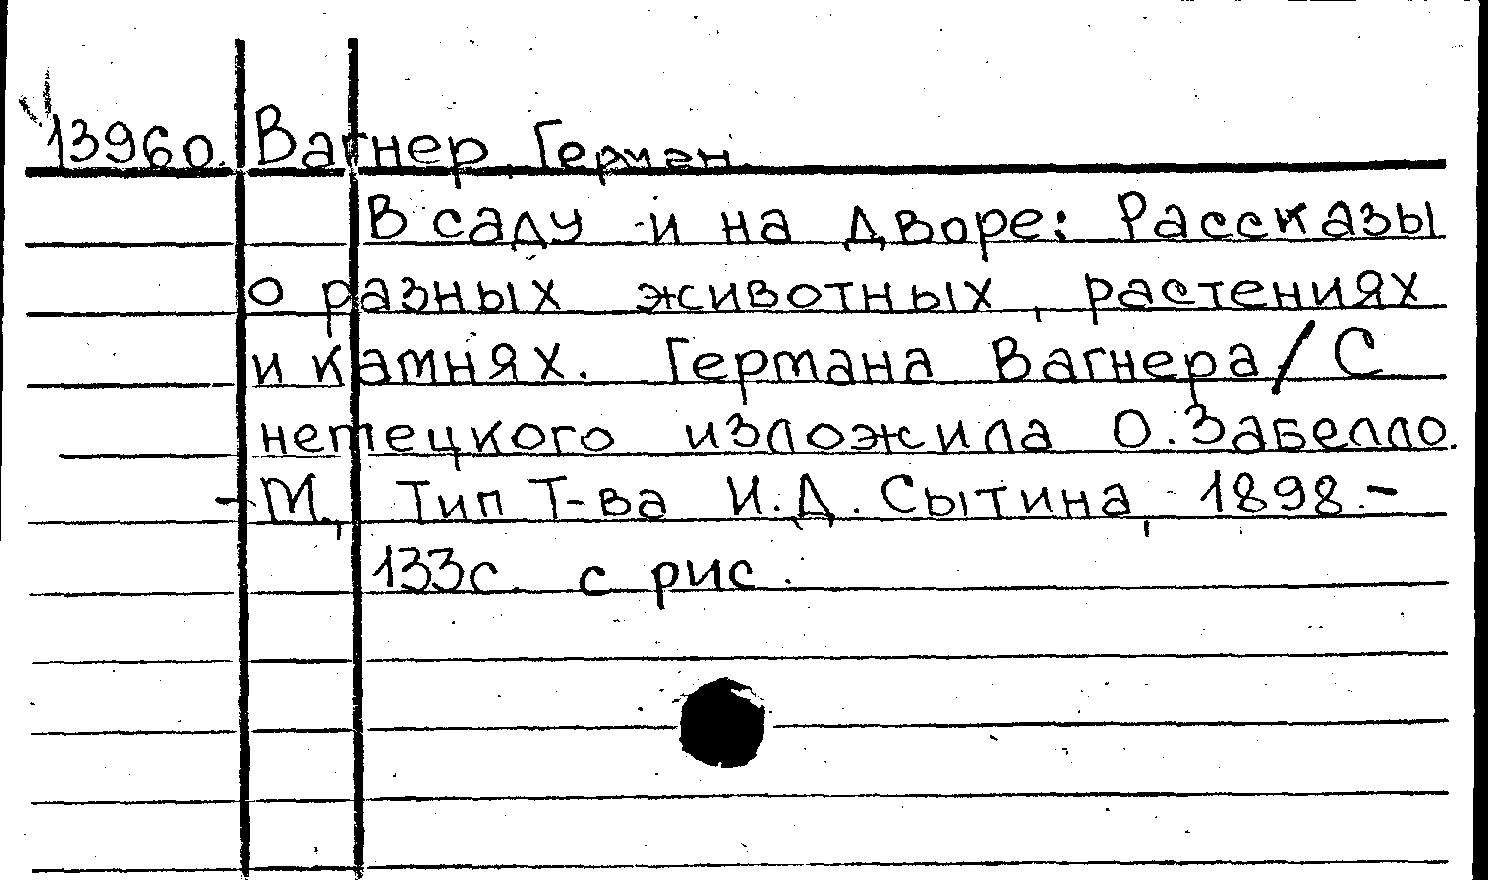 13960. Вагнер, Герман.
В саду и на дворе: Рассказы
о разных животных, растениях
и камнях. Германа Вагнера / С
немецкого изложила О. Забелло.
- М., Тип Т-ва И. Д. Сытина, 1898. -
133с. с рис.